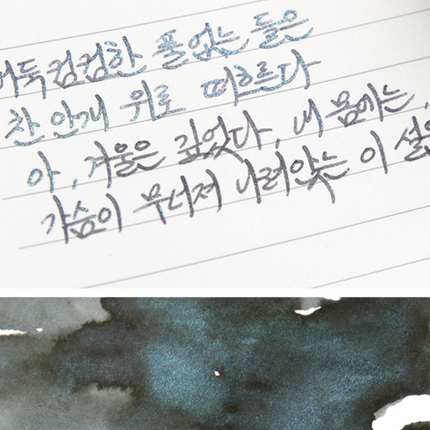 어둑컴컴한 풀 없는 들은
찬 안개 위로 떠흐른다
아, 겨울은 깊었다, 내 몸에는,
가슴이 무너져 내려앉는 이 설움